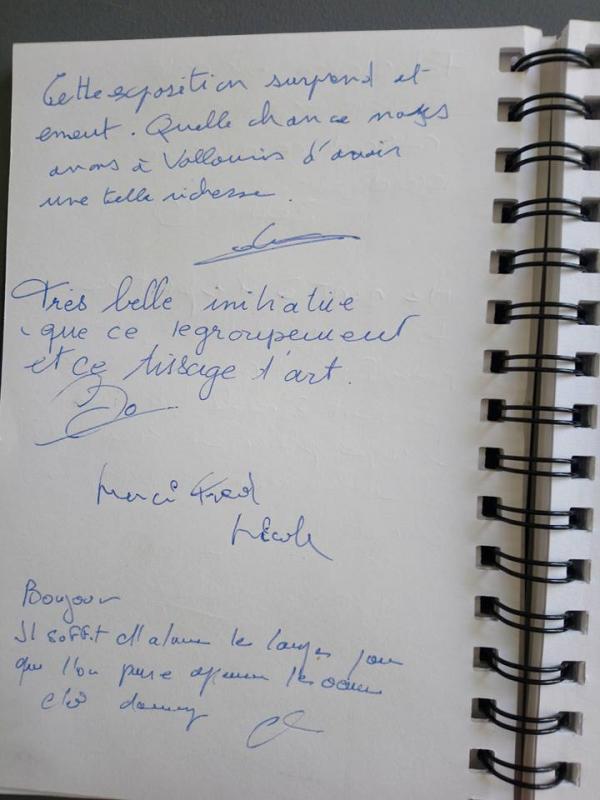 Cette exposition surprend et
ement. Quelle chance nous
avons à Vallauris d'avoir
une telle richesse.
Très belle initiative
que ce regroupement
et ce tissage d'art.
Merci Fred
Nicole
Bonjour
Il suffit les pour
que l'on puisse